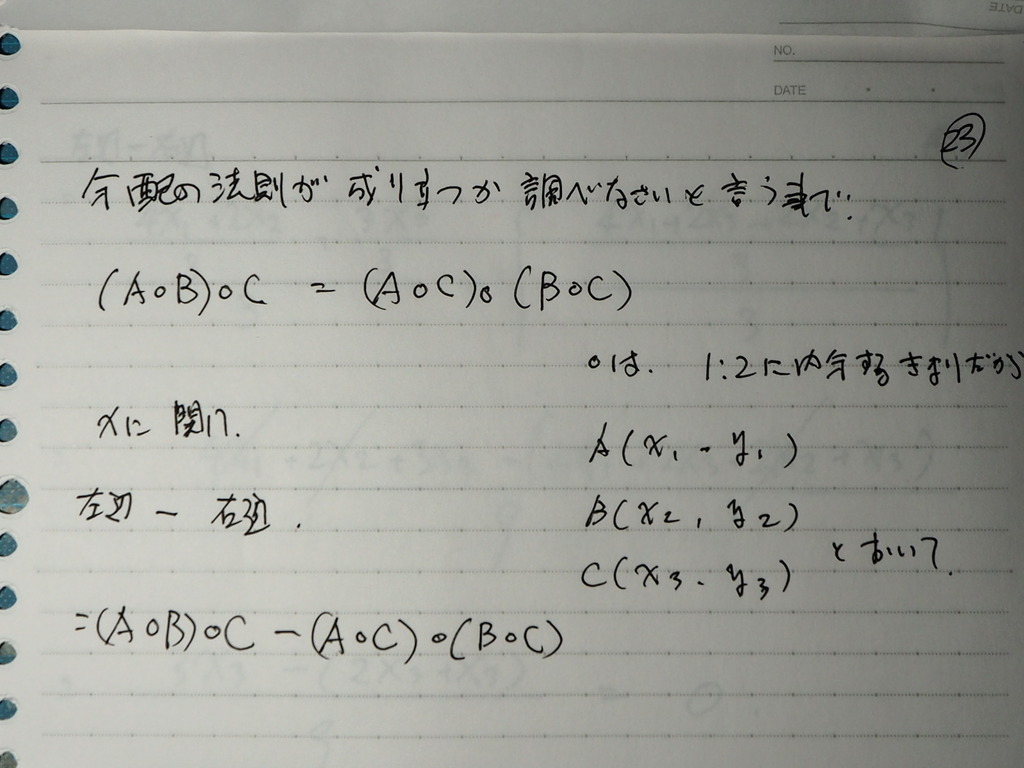 NO.
DATE
㉓
分配の法則が成り立つか調べなさいと言う事で.
(A∘B)∘C = (A∘C)∘(B∘C)
∘は. 1:2に内分するきまりだから
xに関して.
A(x₁, y₁)
左辺 − 右辺.
B(x₂, y₂)
C(x₃, y₃) とおいて.
=(A∘B)∘C −(A∘C)∘(B∘C)